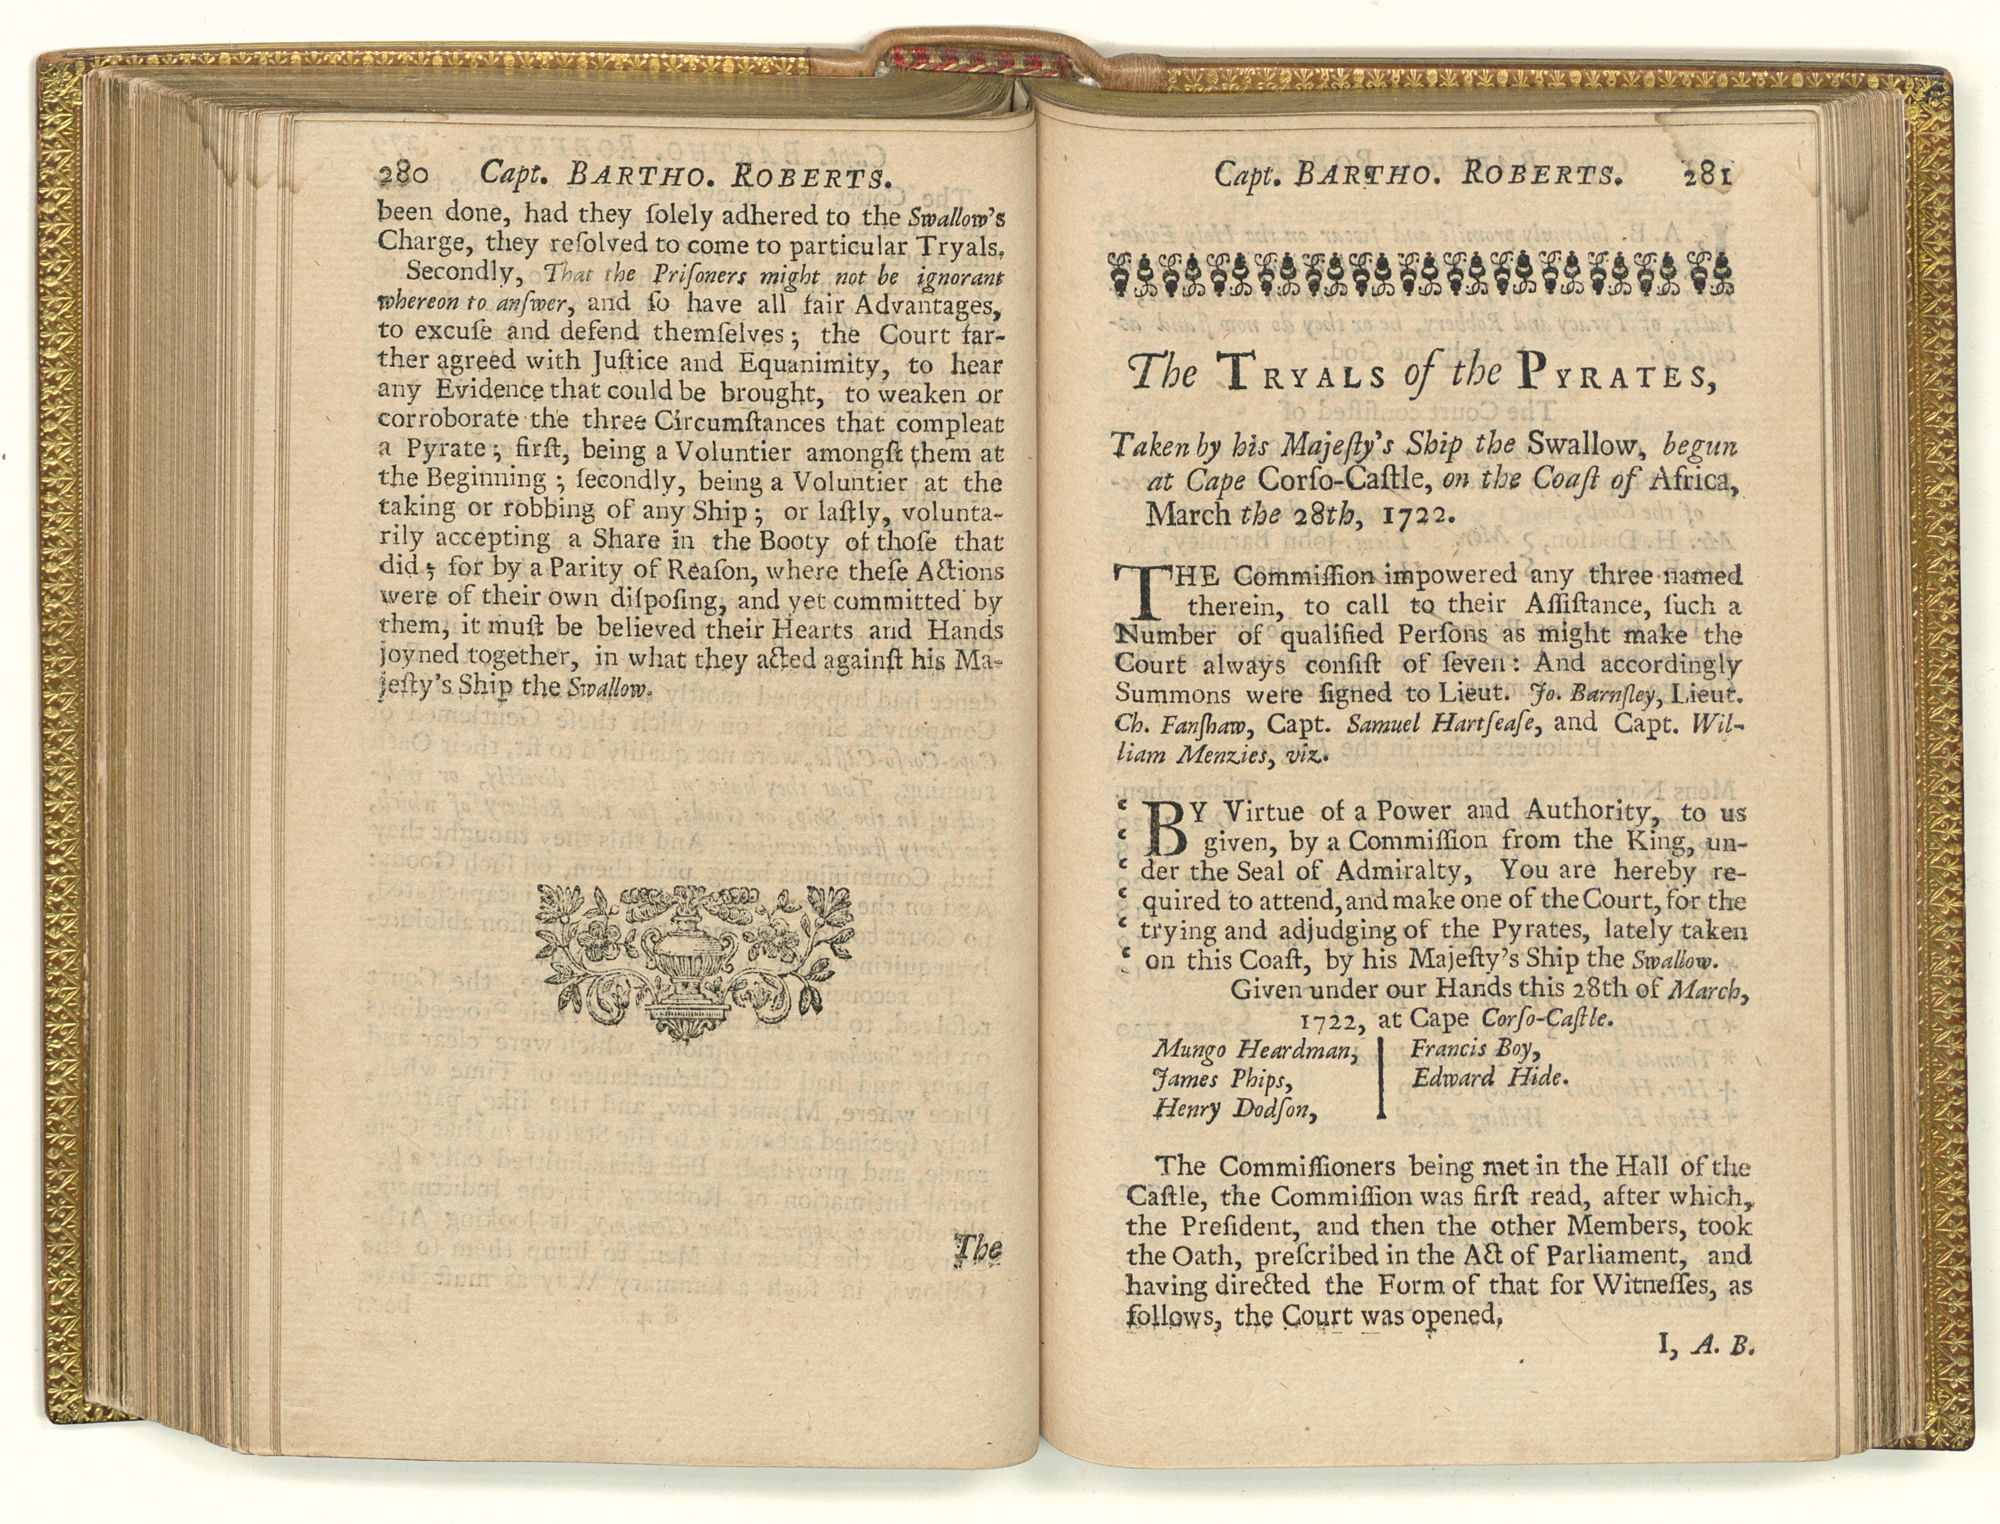 280 Capt. BARTHO. ROBERTS.
been done, had they ſolely adhered to the Swallow's
Charge, they reſolved to come to particular Tryals.
Secondly, That the Priſoners might not be ignorant
whereon to anſwer, and ſo have all fair Advantages,
to excuſe and defend themſelves; the Court far-
ther agreed with Juſtice and Equanimity, to hear
any Evidence that could be brought, to weaken or
corroborate the three Circumſtances that compleat
a Pyrate; firſt, being a Voluntier amongſt them at
the Beginning; ſecondly, being a Voluntier at the
taking or robbing of any Ship; or laſtly, volunta-
rily accepting a Share in the Booty of thoſe that
did; for by a Parity of Reaſon, where theſe Actions
were of their own diſpoſing, and yet committed by
them, it muſt be believed their Hearts and Hands
joyned together, in what they acted againſt his Ma-
jeſty's Ship the Swallow.
The
Capt. BARTHO. ROBERTS. 281
The TRYALS of the PYRATES,
Taken by his Majeſty's Ship the Swallow, begun
at Cape Corſo-Caſtle, on the Coaſt of Africa,
March the 28th, 1722.
THE Commiſſion impowered any three named
therein, to call to their Aſſiſtance, ſuch a
Number of qualified Perſons as might make the
Court always conſiſt of ſeven: And accordingly
Summons were ſigned to Lieut. Jo. Barnſley, Lieut.
Ch. Fanſhaw, Capt. Samuel Hartſeaſe, and Capt. Wil-
liam Menzies, viz.
‘ BY Virtue of a Power and Authority, to us
‘ given, by a Commiſſion from the King, un-
‘ der the Seal of Admiralty, You are hereby re-
‘ quired to attend, and make one of the Court, for the
‘ trying and adjudging of the Pyrates, lately taken
‘ on this Coaſt, by his Majeſty's Ship the Swallow.
Given under our Hands this 28th of March,
1722, at Cape Corſo-Caſtle.
Mungo Heardman, Francis Boy,
James Phips, Edward Hide.
Henry Dodſon,
The Commiſſioners being met in the Hall of the
Caſtle, the Commiſſion was firſt read, after which,
the Preſident, and then the other Members, took
the Oath, preſcribed in the Act of Parliament, and
having directed the Form of that for Witneſſes, as
follows, the Court was opened,
I, A. B.